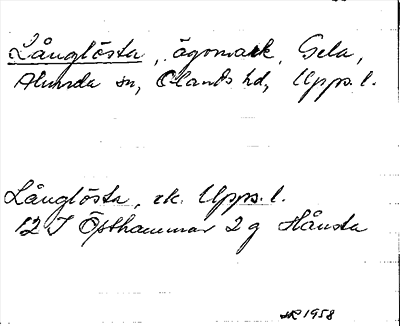 Långlösta, ägomark, Gela,
Alunda sn, Olands hd, Upps. l.
Långlösta, ek. Upps. l.
12 I Östhammar 2 g Hånsta
1958